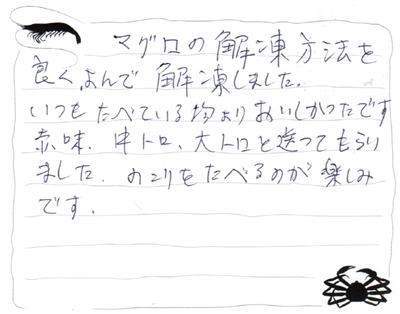 マグロの解凍方法を
良くよんで解凍しました.
いつもたべている物よりおいしかったです
赤味、中トロ、大トロと送ってもらい
ました. のこりをたべるのが楽しみ
です.